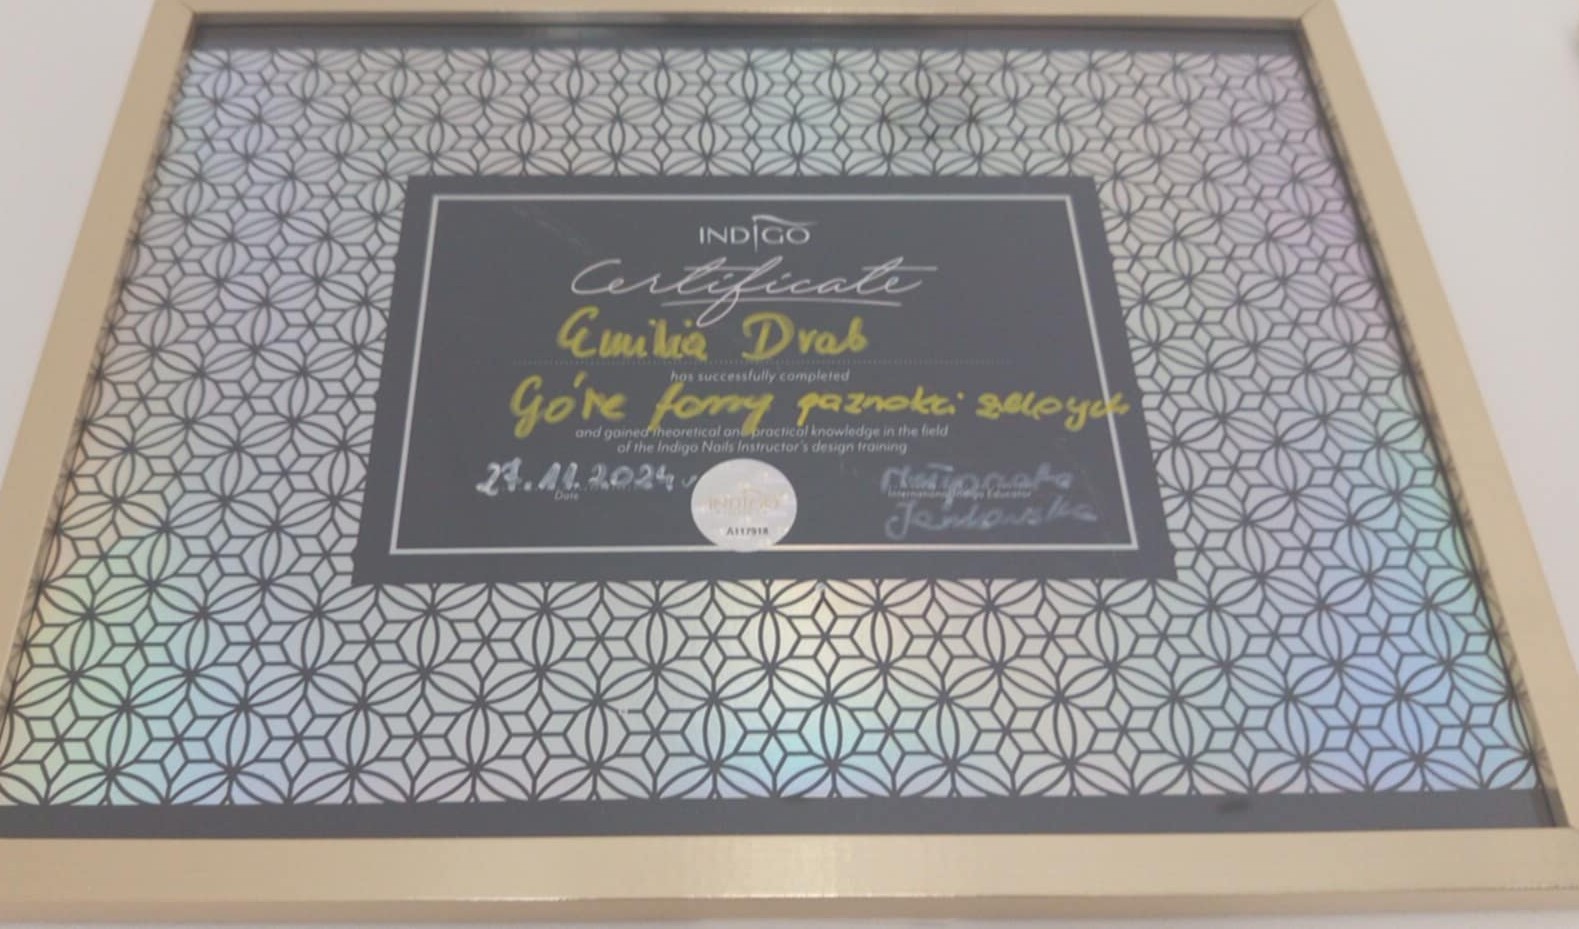 INDIGO
Certificate
Emilia Drab
has successfully completed
Góre formy paznokci żelowych
and gained theoretical and practical knowledge in the field
of the Indigo Nails Instructor's design training
27.11.2024
Date
International Indigo Educator
Jankowska
INDIGO